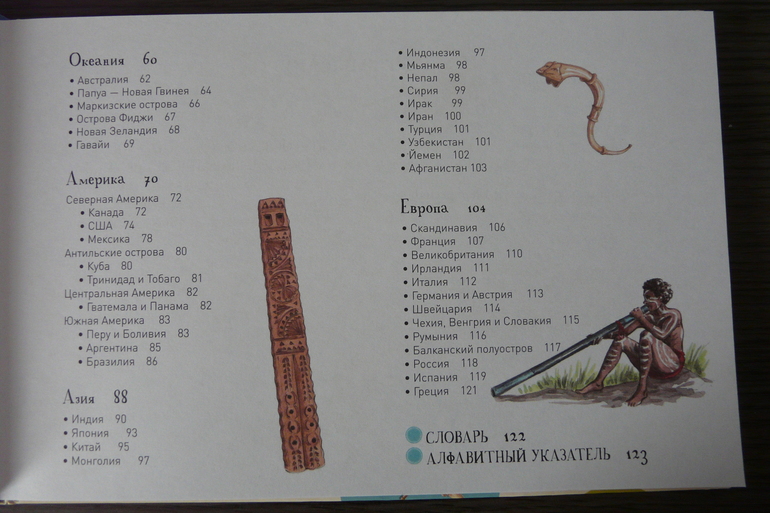 Океания 60
• Австралия 62
• Папуа — Новая Гвинея 64
• Маркизские острова 66
• Острова Фиджи 67
• Новая Зеландия 68
• Гавайи 69
Америка 70
Северная Америка 72
• Канада 72
• США 74
• Мексика 78
Антильские острова 80
• Куба 80
• Тринидад и Тобаго 81
Центральная Америка 82
• Гватемала и Панама 82
Южная Америка 83
• Перу и Боливия 83
• Аргентина 85
• Бразилия 86
Азия 88
• Индия 90
• Япония 93
• Китай 95
• Монголия 97
• Индонезия 97
• Мьянма 98
• Непал 98
• Сирия 99
• Ирак 99
• Иран 100
• Турция 101
• Узбекистан 101
• Йемен 102
• Афганистан 103
Европа 104
• Скандинавия 106
• Франция 107
• Великобритания 110
• Ирландия 111
• Италия 112
• Германия и Австрия 113
• Швейцария 114
• Чехия, Венгрия и Словакия 115
• Румыния 116
• Балканский полуостров 117
• Россия 118
• Испания 119
• Греция 121
СЛОВАРЬ 122
АЛФАВИТНЫЙ УКАЗАТЕЛЬ 123